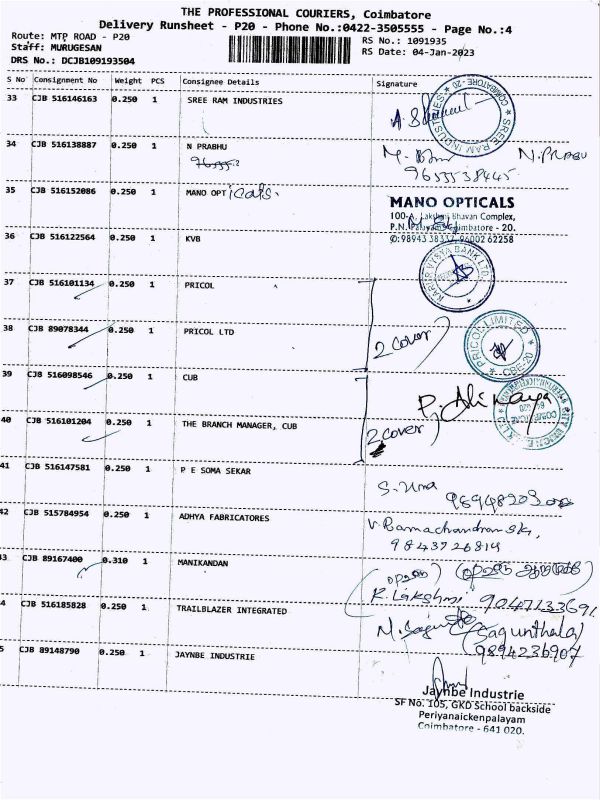 THE PROFESSIONAL COURIERS, Coimbatore
Delivery Runsheet - P20 - Phone No.:0422-3505555 - Page No.:4
Route: MTP ROAD - P20
Staff: MURUGESAN
DRS No.: DCJB109193504
RS No.: 1091935
RS Date: 04-Jan-2023
S No Consignment No Weight PCS Consignee Details Signature
33 CJB 516146163 0.250 1 SREE RAM INDUSTRIES
SREE RAM INDUSTRIES
COIMBATORE - 20
34 CJB 516138887 0.250 1 N PRABHU
N. PRABU
9655538445
35 CJB 516152086 0.250 1 MANO OPTicals.
MANO OPTICALS
100-A, Lakshmi Bhavan Complex,
Coimbatore - 20.
36 CJB 516122564 0.250 1 KVB
KARUR VYSYA BANK LTD
37 CJB 516101134 0.250 1 PRICOL
38 CJB 89078344 0.250 1 PRICOL LTD
2 cover
PRICOL LIMITED
CBE-20
39 CJB 516098546 0.250 1 CUB
40 CJB 516101204 0.250 1 THE BRANCH MANAGER, CUB
2 cover
41 CJB 516147581 0.250 1 P E SOMA SEKAR
S. Uma
42 CJB 515784954 0.250 1 ADHYA FABRICATORES
V. Ramachandran
9843726814
43 CJB 89167400 0.310 1 MANIKANDAN
R. Lakshmi 9047133691
4 CJB 516185828 0.250 1 TRAILBLAZER INTEGRATED
(Sagunthala)
9894236907
5 CJB 89148790 0.250 1 JAYNBE INDUSTRIE
Jaynbe Industrie
SF No. 105, GKD School backside
Periyanaickenpalayam
Coimbatore - 641 020.